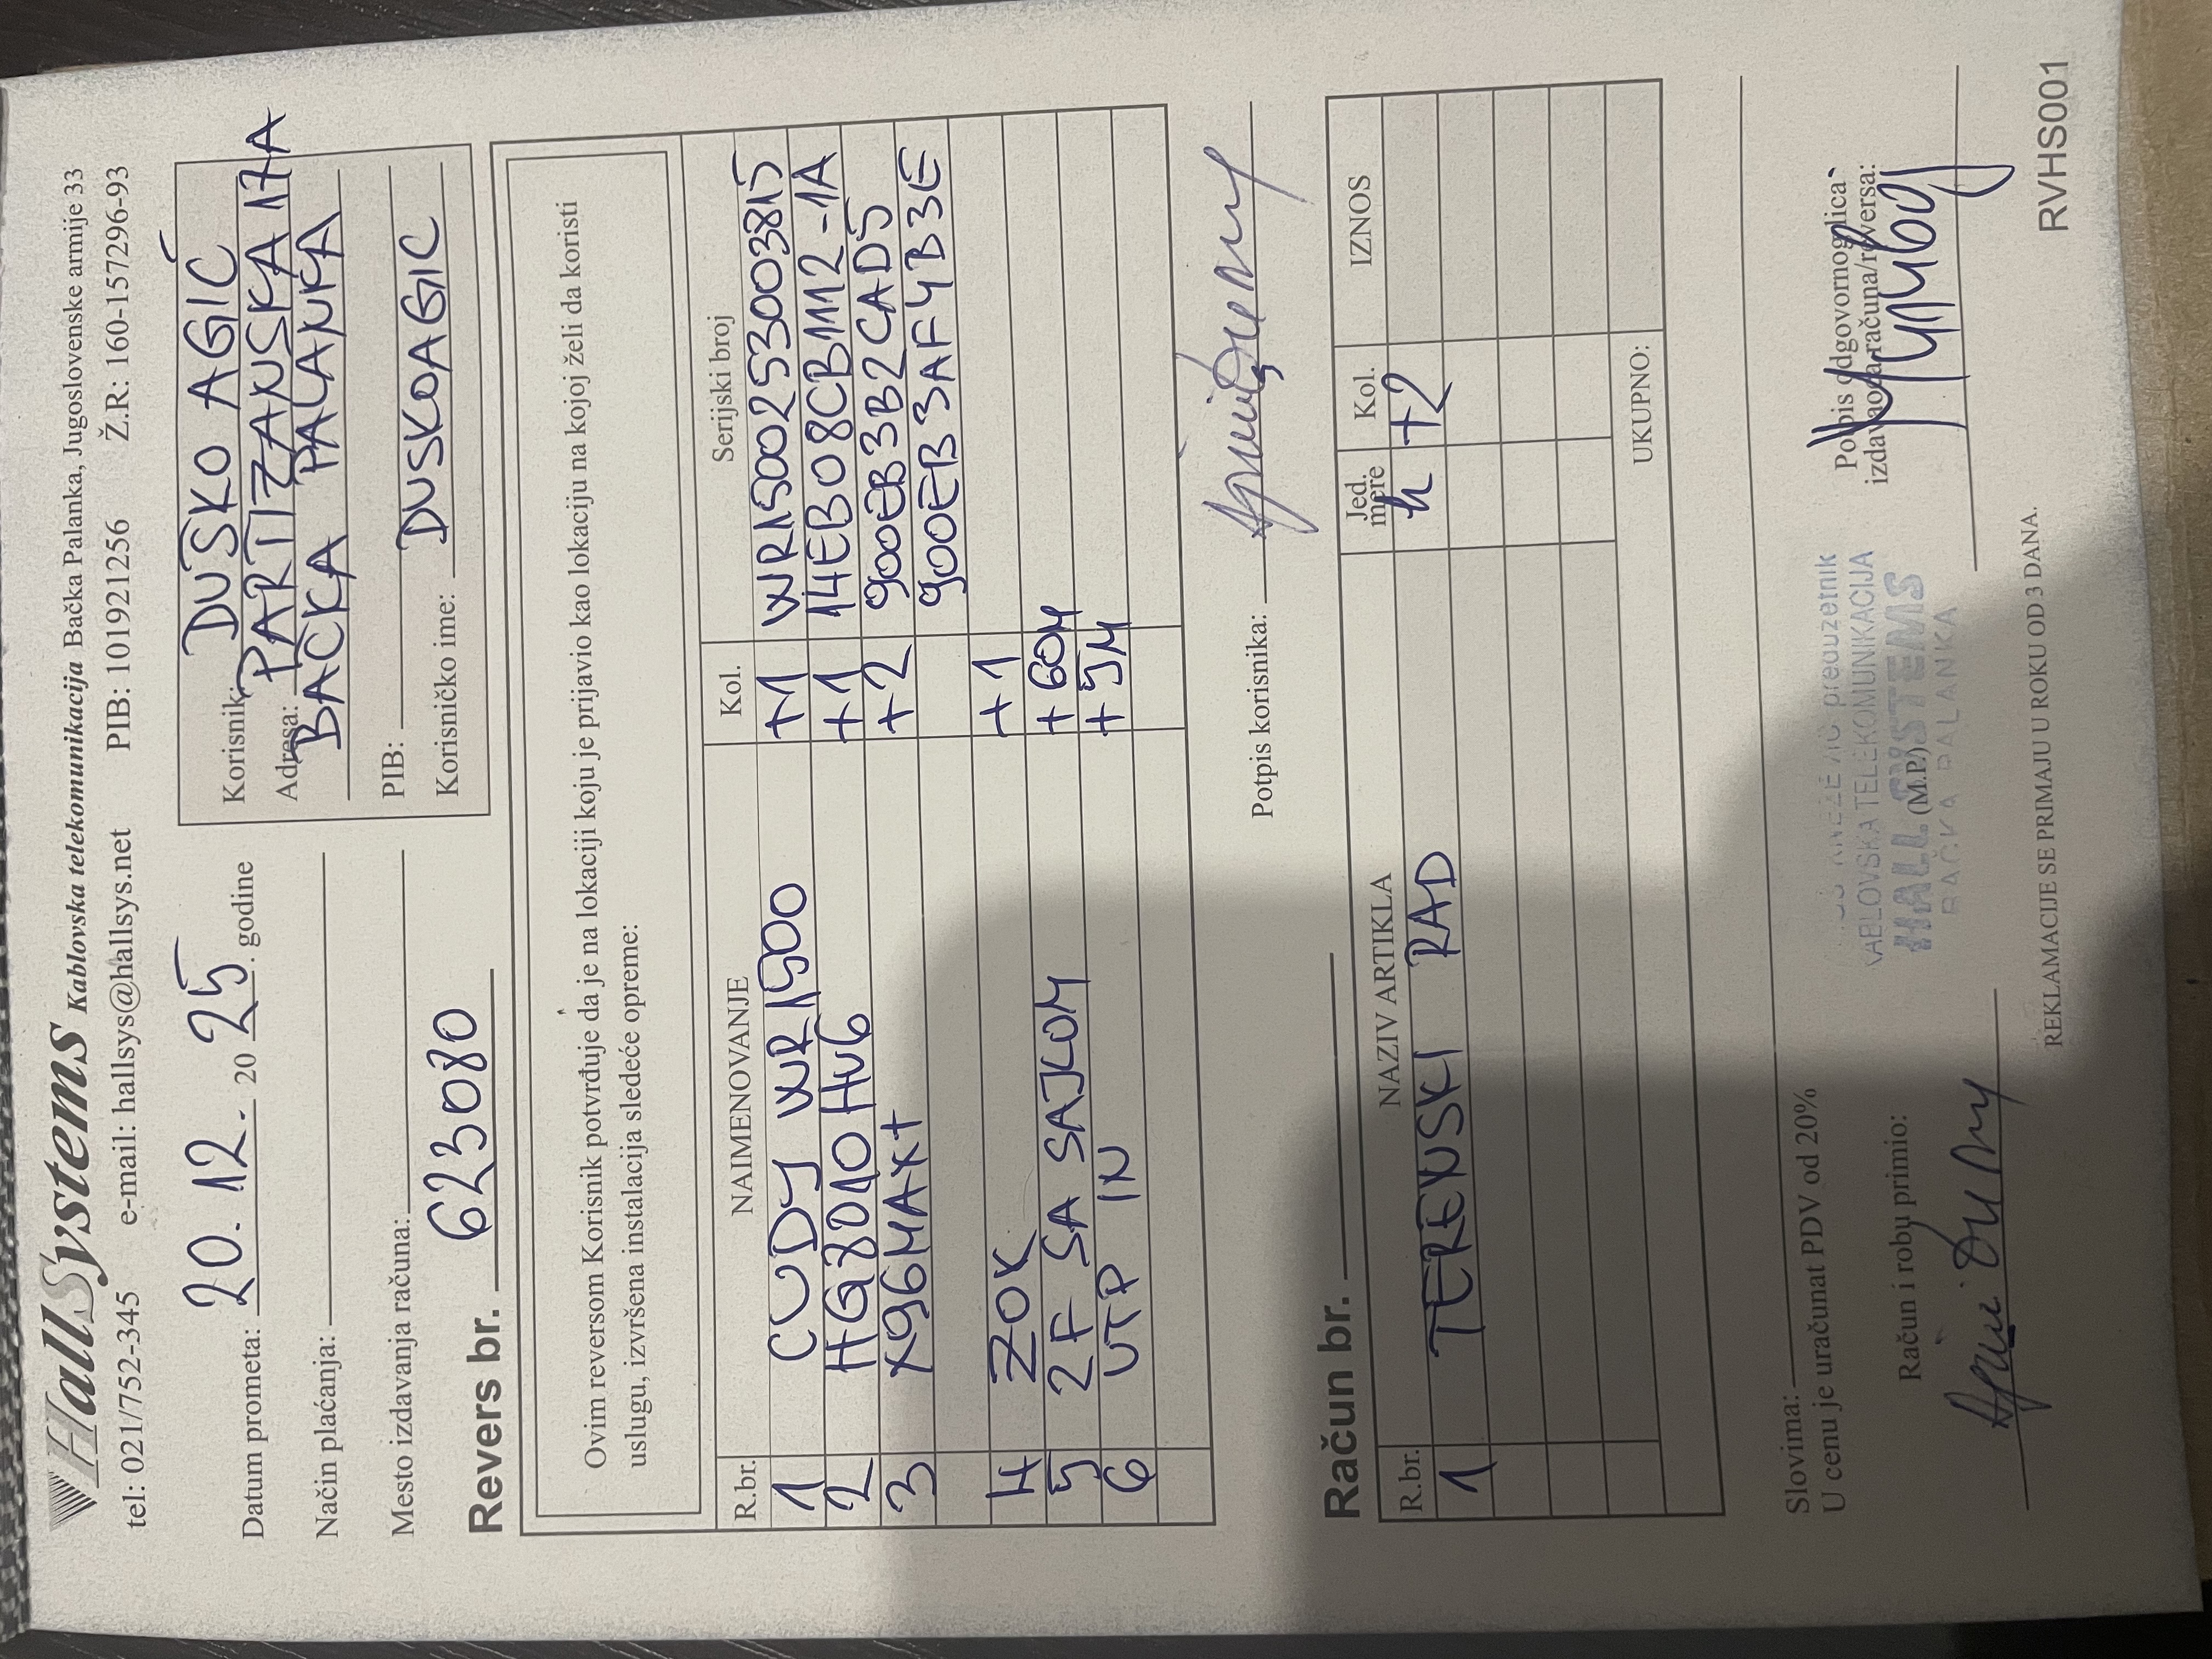 HallSystems Kablovska telekomunikacija Bačka Palanka, Jugoslovenske armije 33
tel: 021/752-345 e-mail: hallsys@hallsys.net PIB: 101921256 Ž.R: 160-157296-93
Datum prometa: 20.12. 20 25. godine
Način plaćanja:
Mesto izdavanja računa:
Korisnik: DUŠKO AGIĆ
Adresa: PARTIZANSKA 17A
BACKA PALANKA
PIB:
Korisničko ime: DUSKOAGIC
Revers br. 623080
Ovim reversom Korisnik potvrđuje da je na lokaciji koju je prijavio kao lokaciju na kojoj želi da koristi
uslugu, izvršena instalacija sledeće opreme:
R.br. NAIMENOVANJE Kol. Serijski broj
1 CUDY WR1500 +1 WR15002253003815
2 HG8010Hv6 +1 14EB08CB1112-1A
3 X96MAX+ +2 900EB3B2CAD5
900EB3AF4B3E
4 ZOK +1
5 2F SA SAJLOM +60M
6 UTP IN +5M
Potpis korisnika:
Račun br.
R.br. NAZIV ARTIKLA Jed. mere Kol. IZNOS
1 TERENSKI RAD h +2
UKUPNO:
Slovima:
U cenu je uračunat PDV od 20%
Račun i robu primio:
(M.P.)
preduzetnik
KABLOVSKA TELEKOMUNIKACIJA
HALL SYSTEMS
BAČKA PALANKA
Potpis odgovornog lica
izdavaoca računa/reversa:
REKLAMACIJE SE PRIMAJU U ROKU OD 3 DANA.
RVHS001